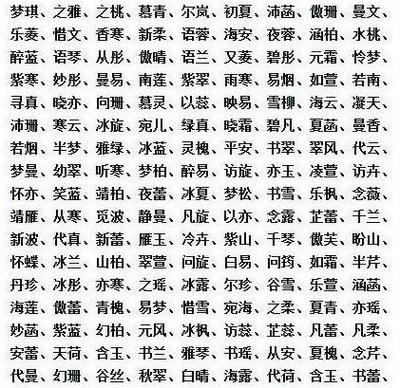 梦琪、之雅、之桃、慕青、尔岚、初夏、沛菡、傲珊、曼文、
乐菱、惜文、香寒、新柔、语蓉、海安、夜蓉、涵柏、水桃、
醉蓝、语琴、从彤、傲晴、语兰、又菱、碧彤、元霜、怜梦、
紫寒、妙彤、曼易、南莲、紫翠、雨寒、易烟、如萱、若南、
寻真、晓亦、向珊、慕灵、以蕊、映易、雪柳、海云、凝天、
沛珊、寒云、冰旋、宛儿、绿真、晓霜、碧凡、夏菡、曼香、
若烟、半梦、雅绿、冰蓝、灵槐、平安、书翠、翠风、代云、
梦曼、幼翠、听寒、梦柏、醉易、访旋、亦玉、凌萱、访卉、
怀亦、笑蓝、靖柏、夜蕾、冰夏、梦松、书雪、乐枫、念薇、
靖雁、从寒、觅波、静曼、凡旋、以亦、念露、芷蕾、千兰、
新波、代真、新蕾、雁玉、冷卉、紫山、千琴、傲芙、盼山、
怀蝶、冰兰、山柏、翠萱、问旋、白易、问筠、如霜、半芹、
丹珍、冰彤、亦寒、之瑶、冰露、尔珍、谷雪、乐萱、涵菡、
海莲、傲蕾、青槐、易梦、惜雪、宛海、之柔、夏青、亦瑶、
妙菡、紫蓝、幻柏、元风、冰枫、访蕊、芷蕊、凡蕾、凡柔、
安蕾、天荷、含玉、书兰、雅琴、书瑶、从安、夏槐、念芹、
代曼、幻珊、谷丝、秋翠、白晴、海露、代荷、含玉、书蕾、